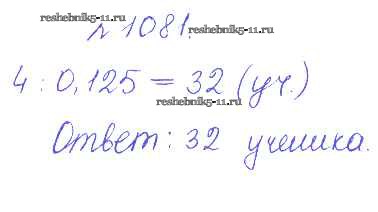 reshebnik5-11.ru
№1081. reshebnik5-11.ru
4 : 0,125 = 32 (уч.)
reshebnik5-11.ru
Ответ: 32 ученика.